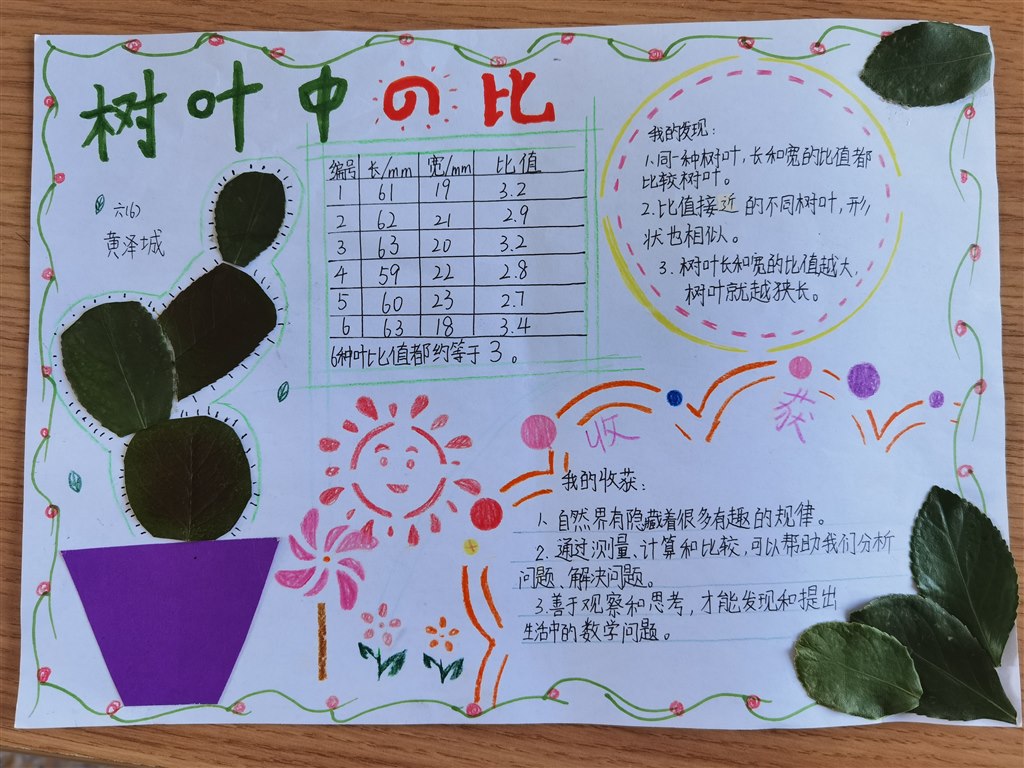 树叶中の比
六(6)
黄泽城
编号 长/mm 宽/mm 比值
1 61 19 3.2
2 62 21 2.9
3 63 20 3.2
4 59 22 2.8
5 60 23 2.7
6 63 18 3.4
6种叶比值都约等于3。
我的发现:
1、同一种树叶,长和宽的比值都
比较树叶。
2.比值接近的不同树叶,形
状也相似。
3.树叶长和宽的比值越大,
树叶就越狭长。
收获
我的收获:
1、自然界有隐藏着很多有趣的规律。
2.通过测量、计算和比较,可以帮助我们分析
问题、解决问题。
3.善于观察和思考,才能发现和提出
生活中的数学问题。